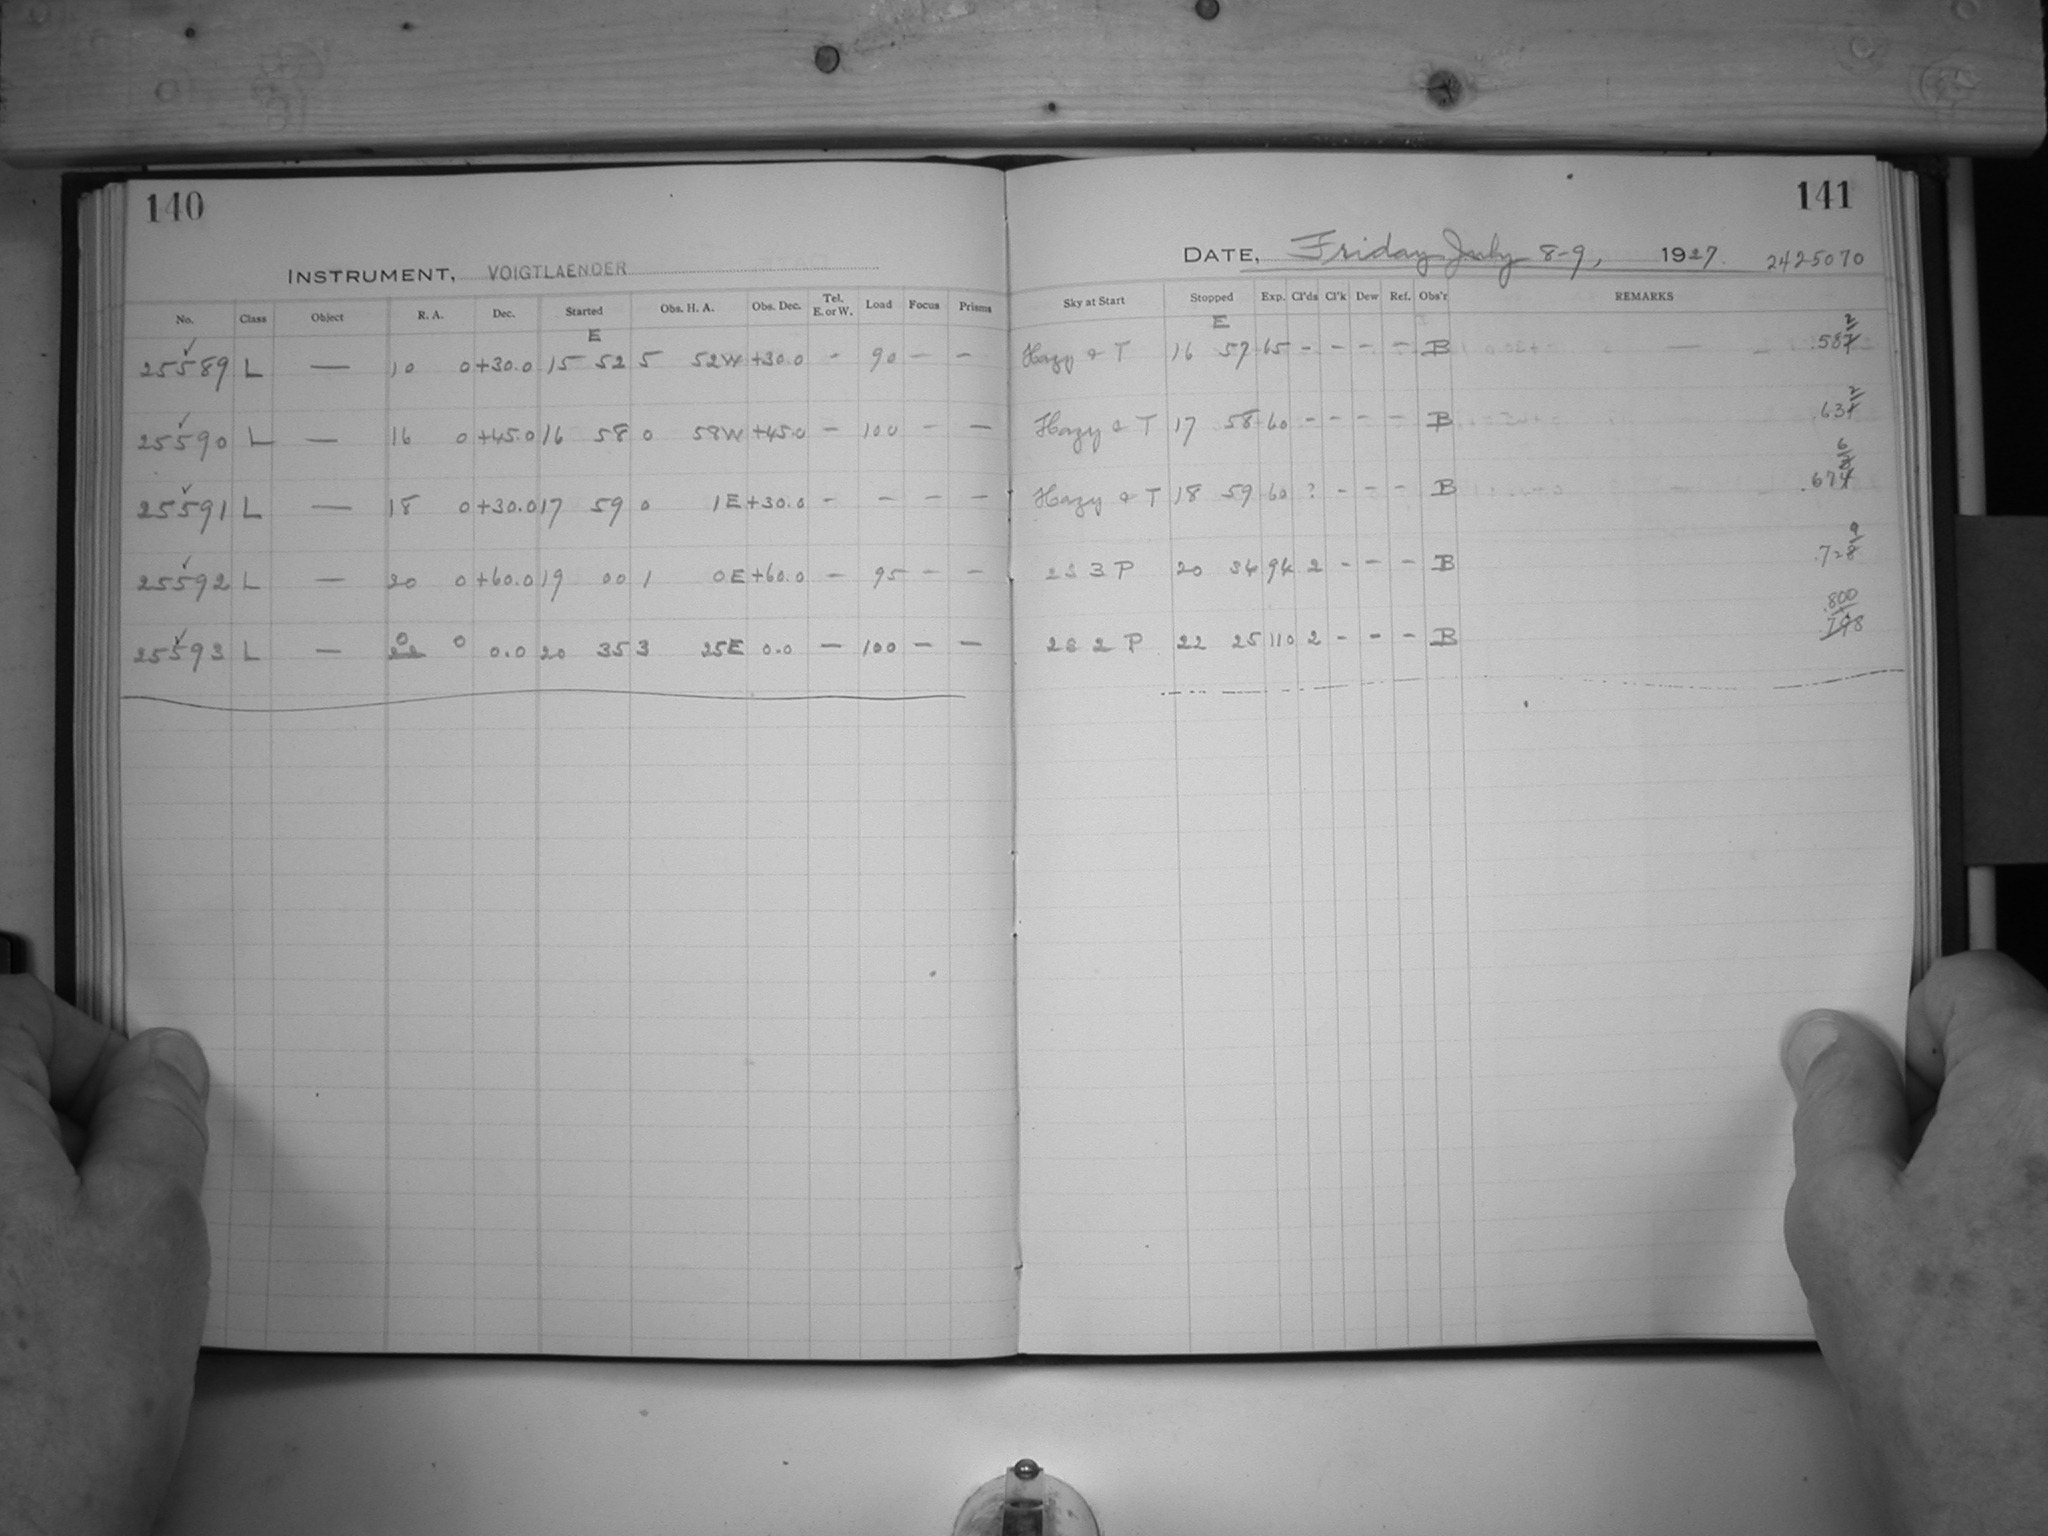 140
INSTRUMENT, VOIGTLAENDER
No. Class Object R. A. Dec. Started Obs. H. A. Obs. Dec. Tel. E. or W. Load Focus Prisms
E
25589 L — 10 0 +30.0 15 52 5 52W +30.0 - 90 - -
25590 L — 16 0 +45.0 16 58 0 58W +45.0 - 100 - -
25591 L — 18 0 +30.0 17 59 0 1E +30.0 - - - -
25592 L — 20 0 +60.0 19 00 1 0E +60.0 - 95 - -
25593 L — 0 0 0.0 20 35 3 25E 0.0 - 100 - -
141
DATE, Friday July 8-9, 1927. 2425070
Sky at Start Stopped Exp. Cl'ds Cl'k Dew Ref. Obs'r REMARKS
E
Hazy & T 16 57 65 - - - - B .582
Hazy & T 17 58 60 - - - - B .632
Hazy & T 18 59 60 ? - - - B .676
2S 3 P 20 34 94 2 - - - B .729
2S 2 P 22 25 110 2 - - - B .800